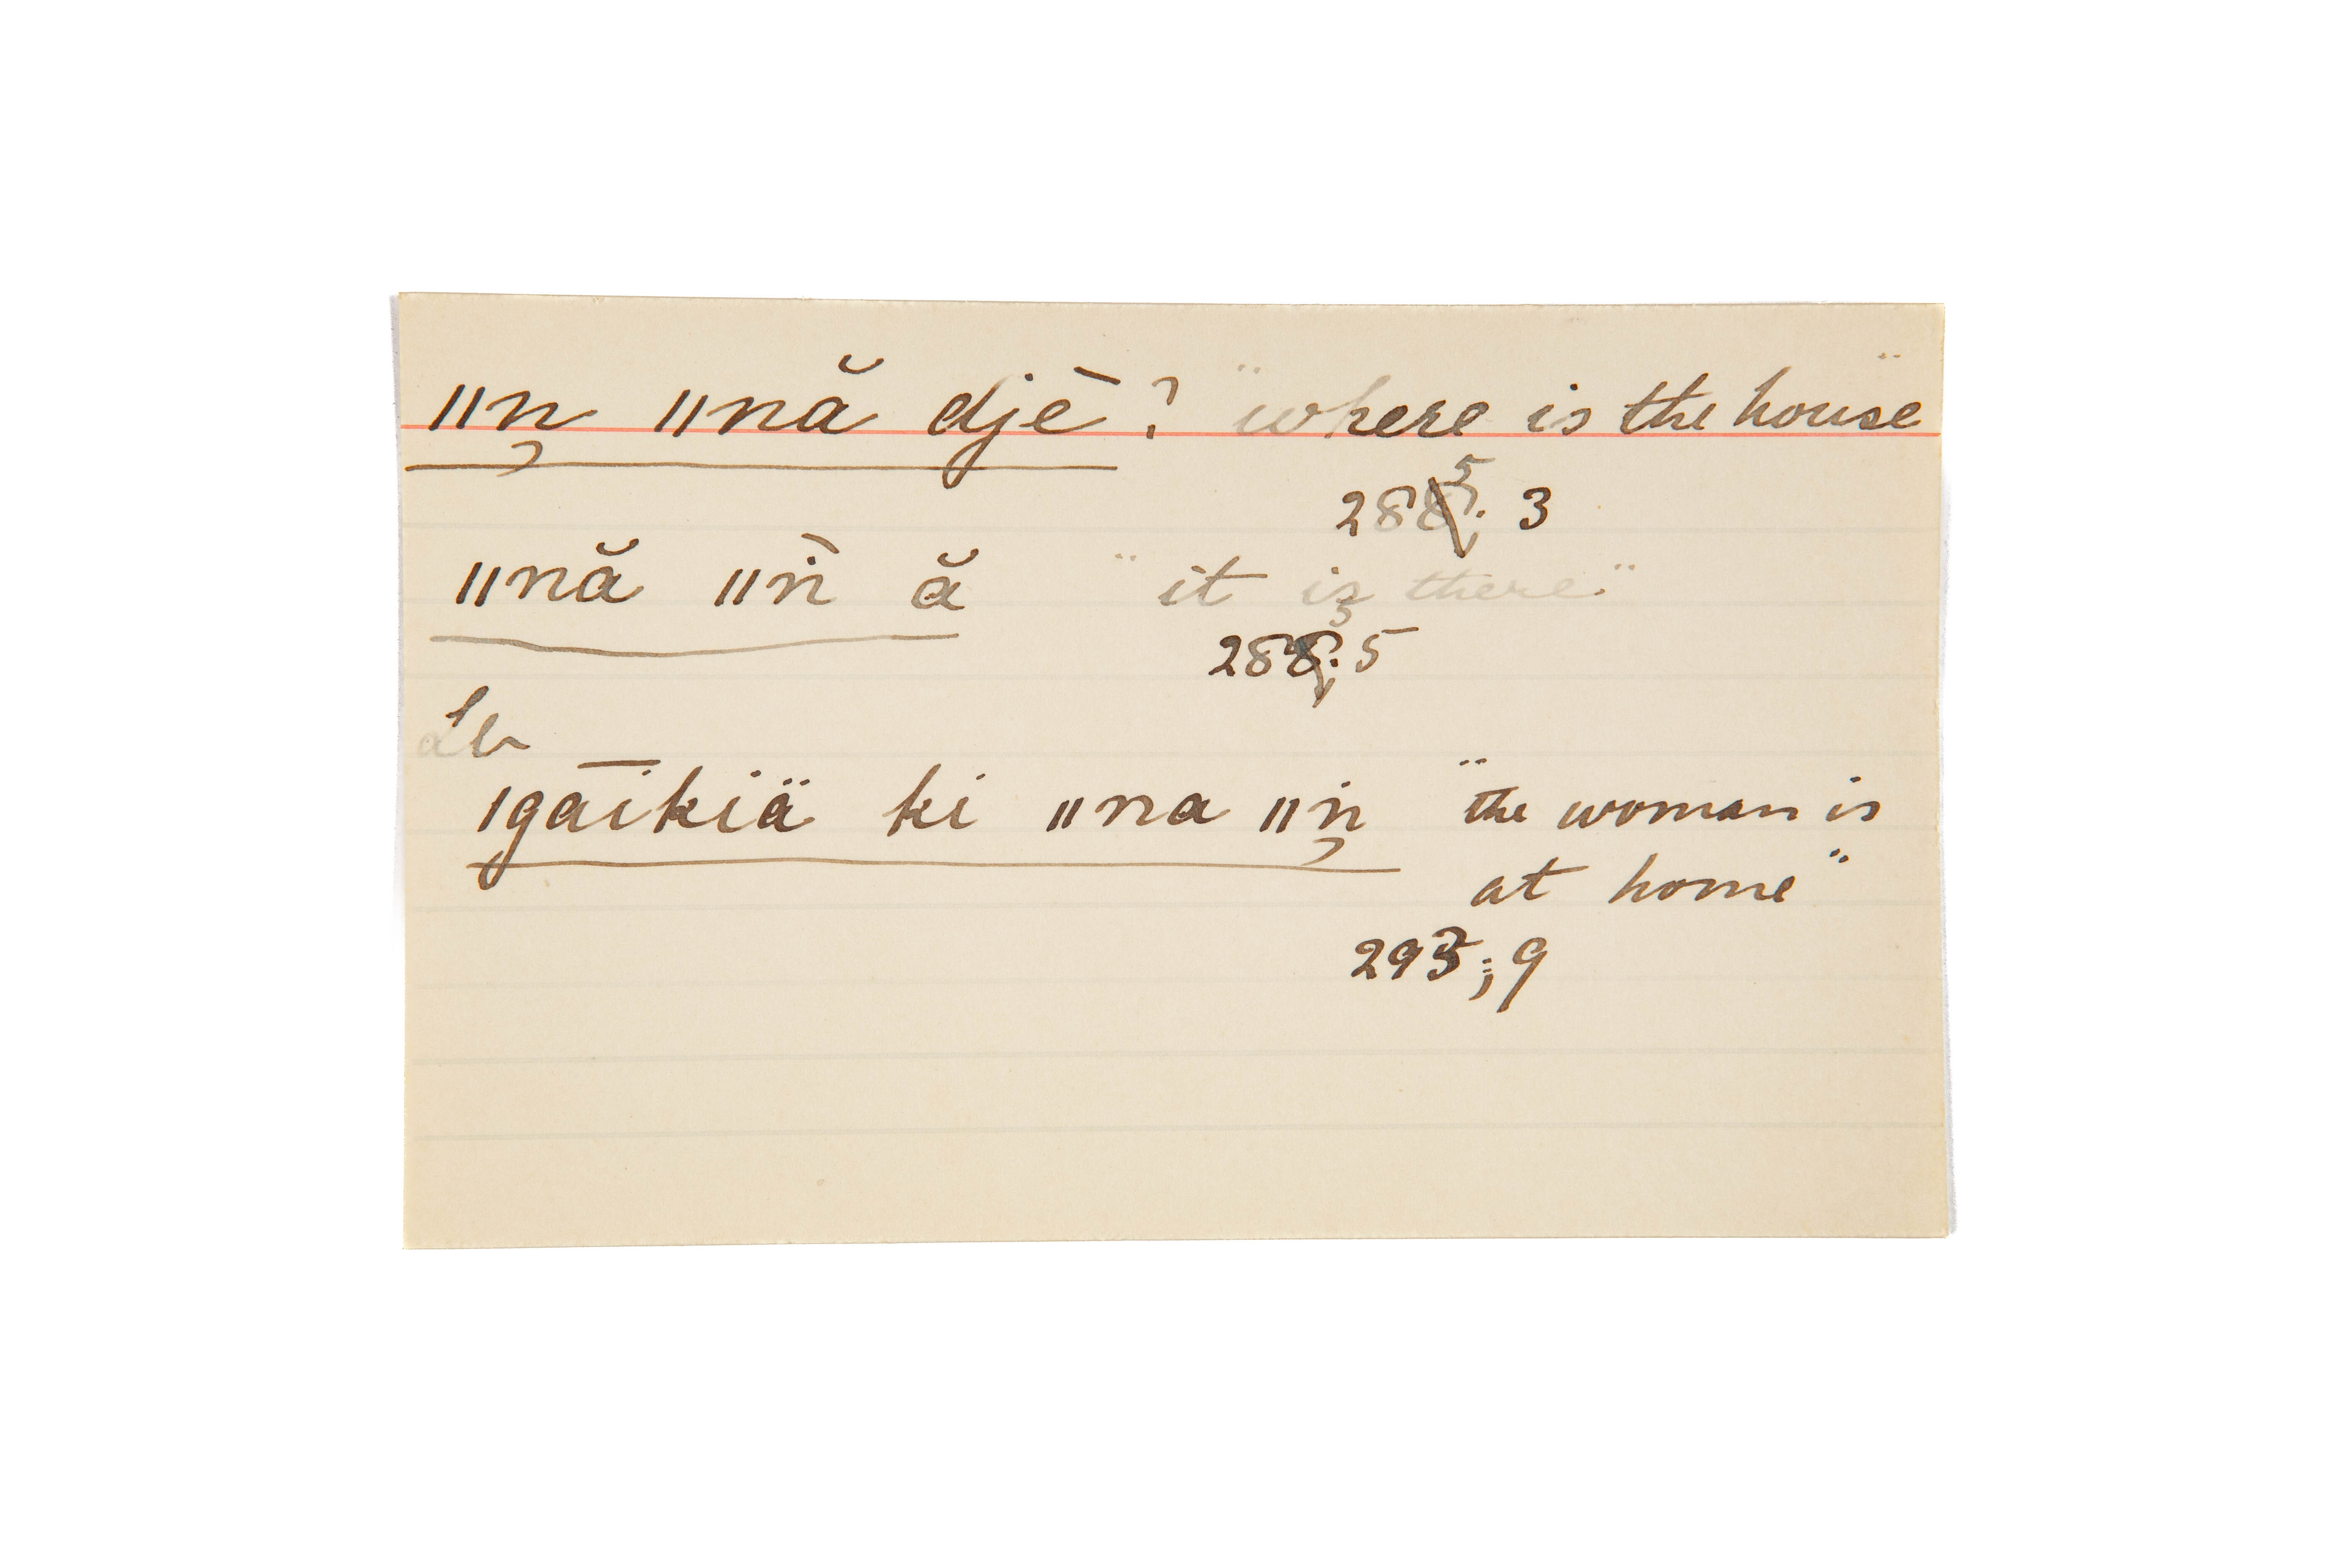 ǁn̡ ǁnă djè ? "where is the house"
285 : 3
ǁnă ǁǹ ă "it is there"
285 : 5
ǀgā̄ikiä ki ǁna ǁṅ̡ "the woman is
at home"
293 ; 9